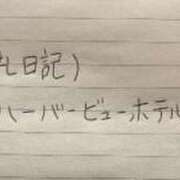 礼日記)
ハーバービューホテル